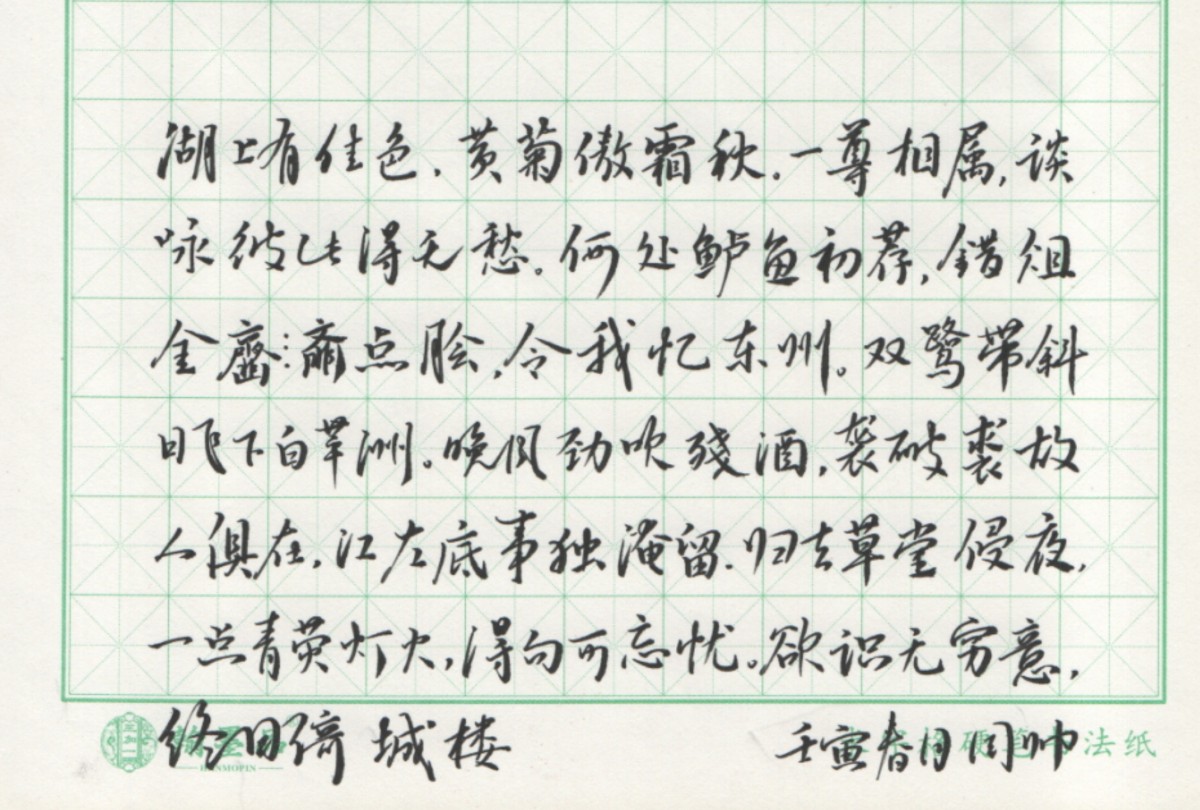 湖上有佳色，黄菊傲霜秋，一尊相属，谈
咏彼此得无愁。何处鲈鱼初荐，错俎
金齑:齑点脍，令我忆东州。双鹭带斜
日飞下白苹洲。晚风劲吹残酒，袭破裘故
人俱在，江左底事独淹留.归去草堂侵夜，
一点青荧灯火，得句可忘忧。欲识无穷意，
终日倚城楼
壬寅春月周帅
HANMOPIN
法纸